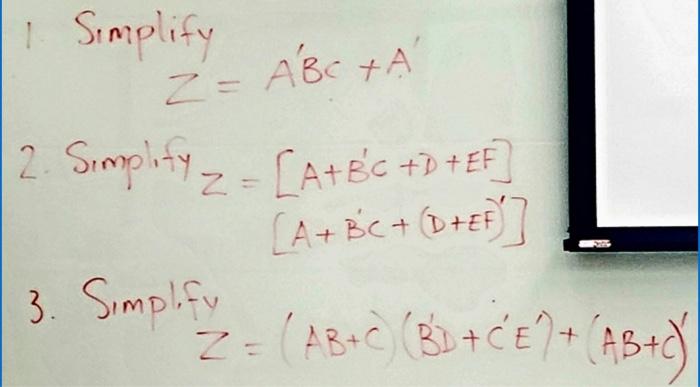 1. Simplify
Z = A'BC + A'
2. Simplify Z = [A+B'C +D+EF]
[A+B'C+(D+EF)']
3. Simplify
Z = (AB+C)(B'D+C'E')+(AB+C)'